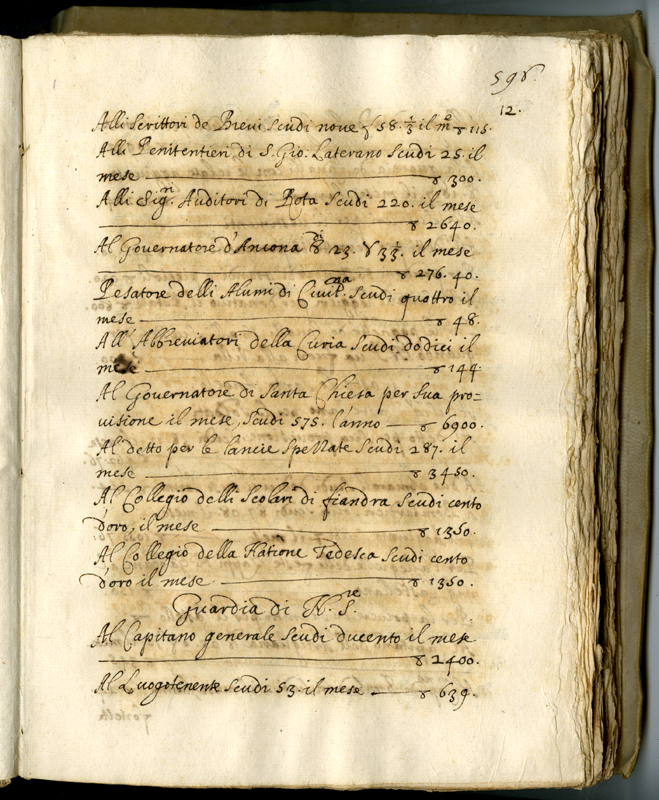 598.
12.
Alli Scrittori de Brevi Scudi nove ∫ 58. 1/3 il mo ꝸ 115.
Alli Penitentieri di S. Gio. Laterano Scudi 25. il
mese ꝸ 300.
Alli Sigri. Auditori di Rota Scudi 220. il mese
ꝸ 2640.
Al Governatore d'Ancona 23. 33. il mese
ꝸ 276. 40.
Pesatore delli Alumi di Civita. Scudi quattro il
mese ꝸ 48.
All' Abbreviatori della Curia Scudi dodici il
mese ꝸ 144.
Al Governatore di Santa Chiesa per sua pro=
visione il mese, Scudi 575. l'anno ꝸ 6900.
Al detto per le lancie Spezzate Scudi 287. il
mese ꝸ 3450.
Al Collegio delli Scolari di fiandra Scudi cento
d'oro, il mese ꝸ 1350.
Al Collegio della Natione Tedesca Scudi cento
d'oro il mese ꝸ 1350.
Guardia di N. Sre.
Al Capitano generale Scudi ducento il mese
ꝸ 2400.
Al Luogotenente Scudi 53. il mese ꝸ 639.